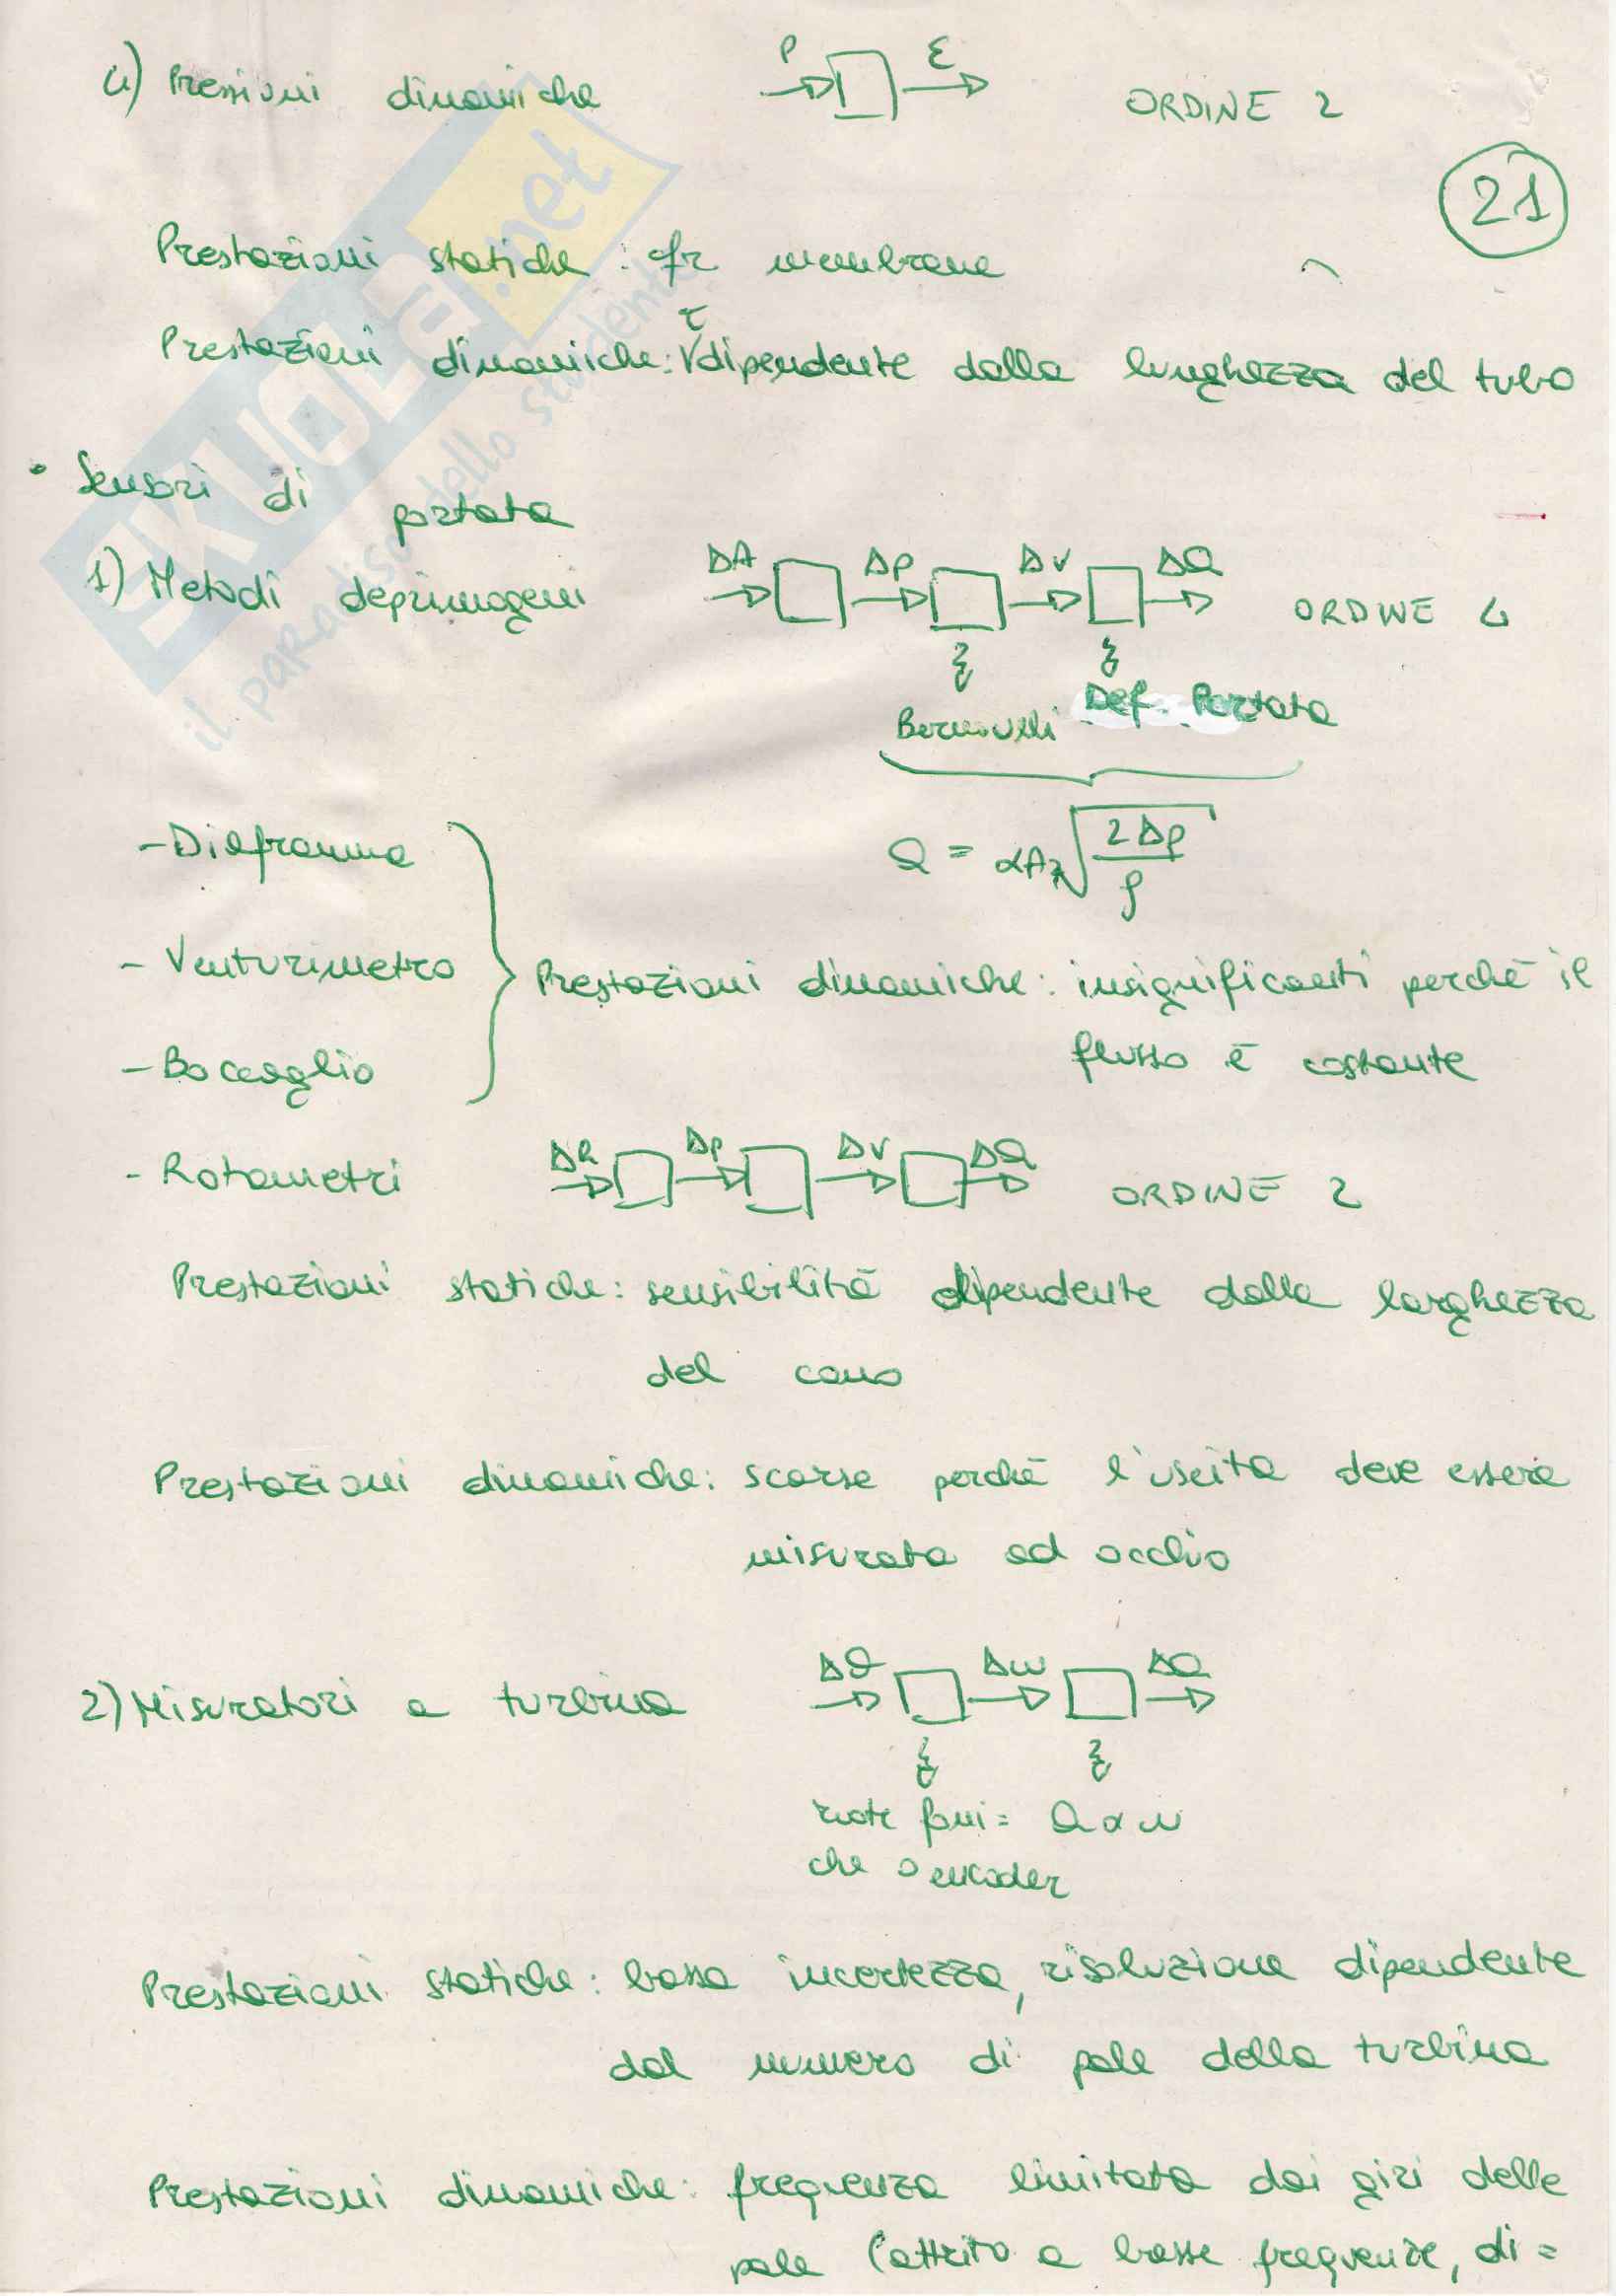 4) Pressioni dinamiche P ε ORDINE 2
21
Prestazioni statiche: fr membrana
Prestazioni dinamiche: τ dipendente dalla lunghezza del tubo
• Sensori di portata
1) Metodi deprimogeni ΔA Δp Δv ΔQ ORDINE
Bernoulli Def. Portata
- Diaframma
Q = αA₂√(2Δp/ρ)
- Venturimetro Prestazioni dinamiche: insignificanti perché il
flusso è costante
- Boccaglio
- Rotametri ΔR Δp Δv ΔQ ORDINE 2
Prestazioni statiche: sensibilità dipendente dalla larghezza
del cono
Prestazioni dinamiche: scarse perché l'uscita deve essere
misurata ad occhio
2) Misuratori a turbina Δϑ Δω ΔQ
ruote foni= Q α
che o encoder
Prestazioni statiche: bassa incertezza, risoluzione dipendente
dal numero di pale della turbina
Prestazioni dinamiche: frequenza limitata dai giri delle
pale (attrito a basse frequenze, di=
SKUOLA.net
il paradiso dello studente